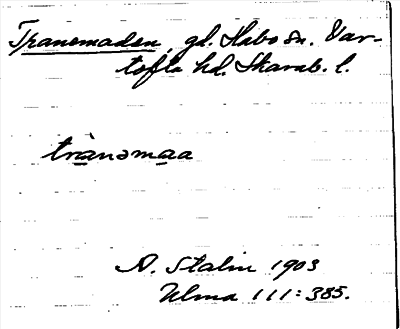 Tranemaden, gd. Habo sn. Var-
tofta hd. Skarab. l.
trànəmaa
N. Stalin 1903
Ulma 111:385.